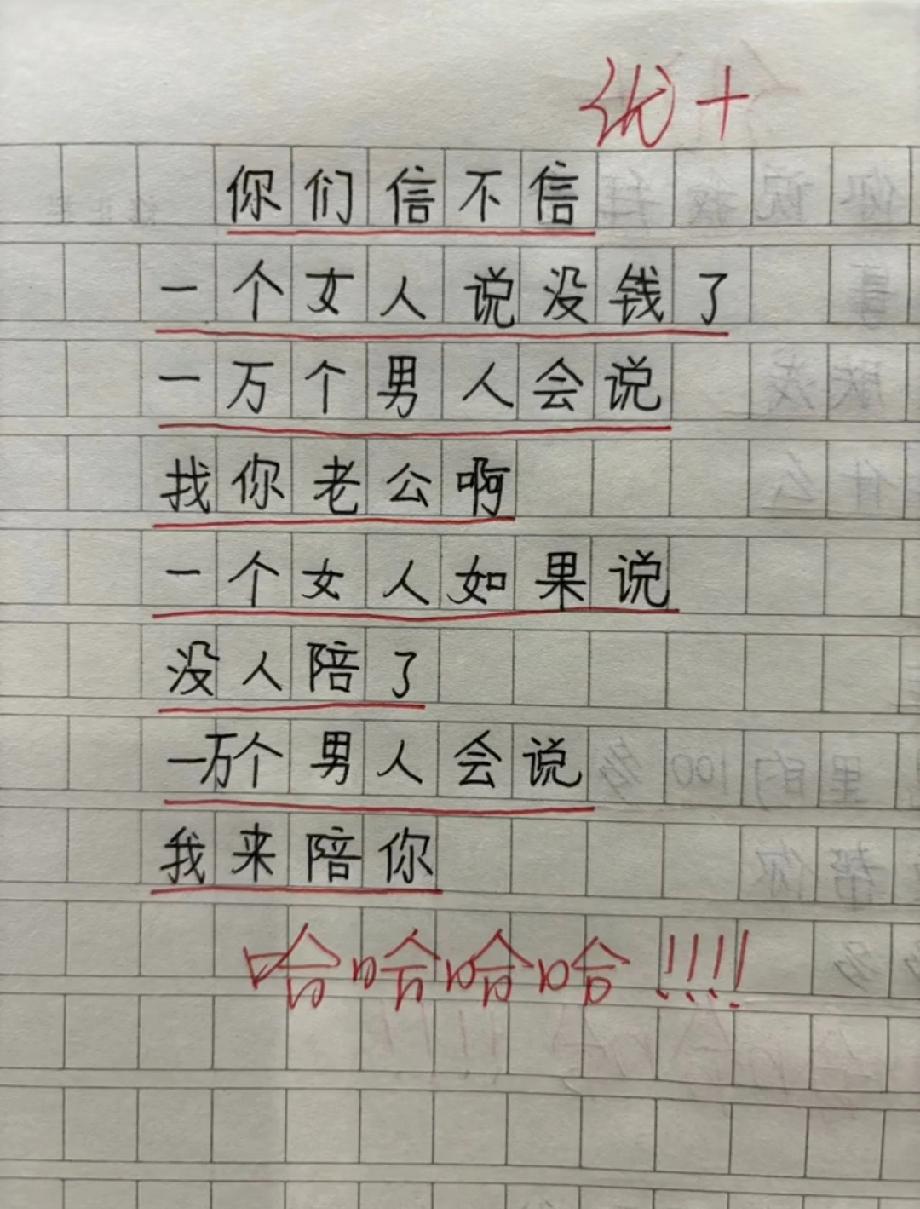 优+
你们信不信
一个女人说没钱了
一万个男人会说
找你老公啊
一个女人如果说
没人陪了
一万个男人会说
我来陪你
哈哈哈哈!!!!